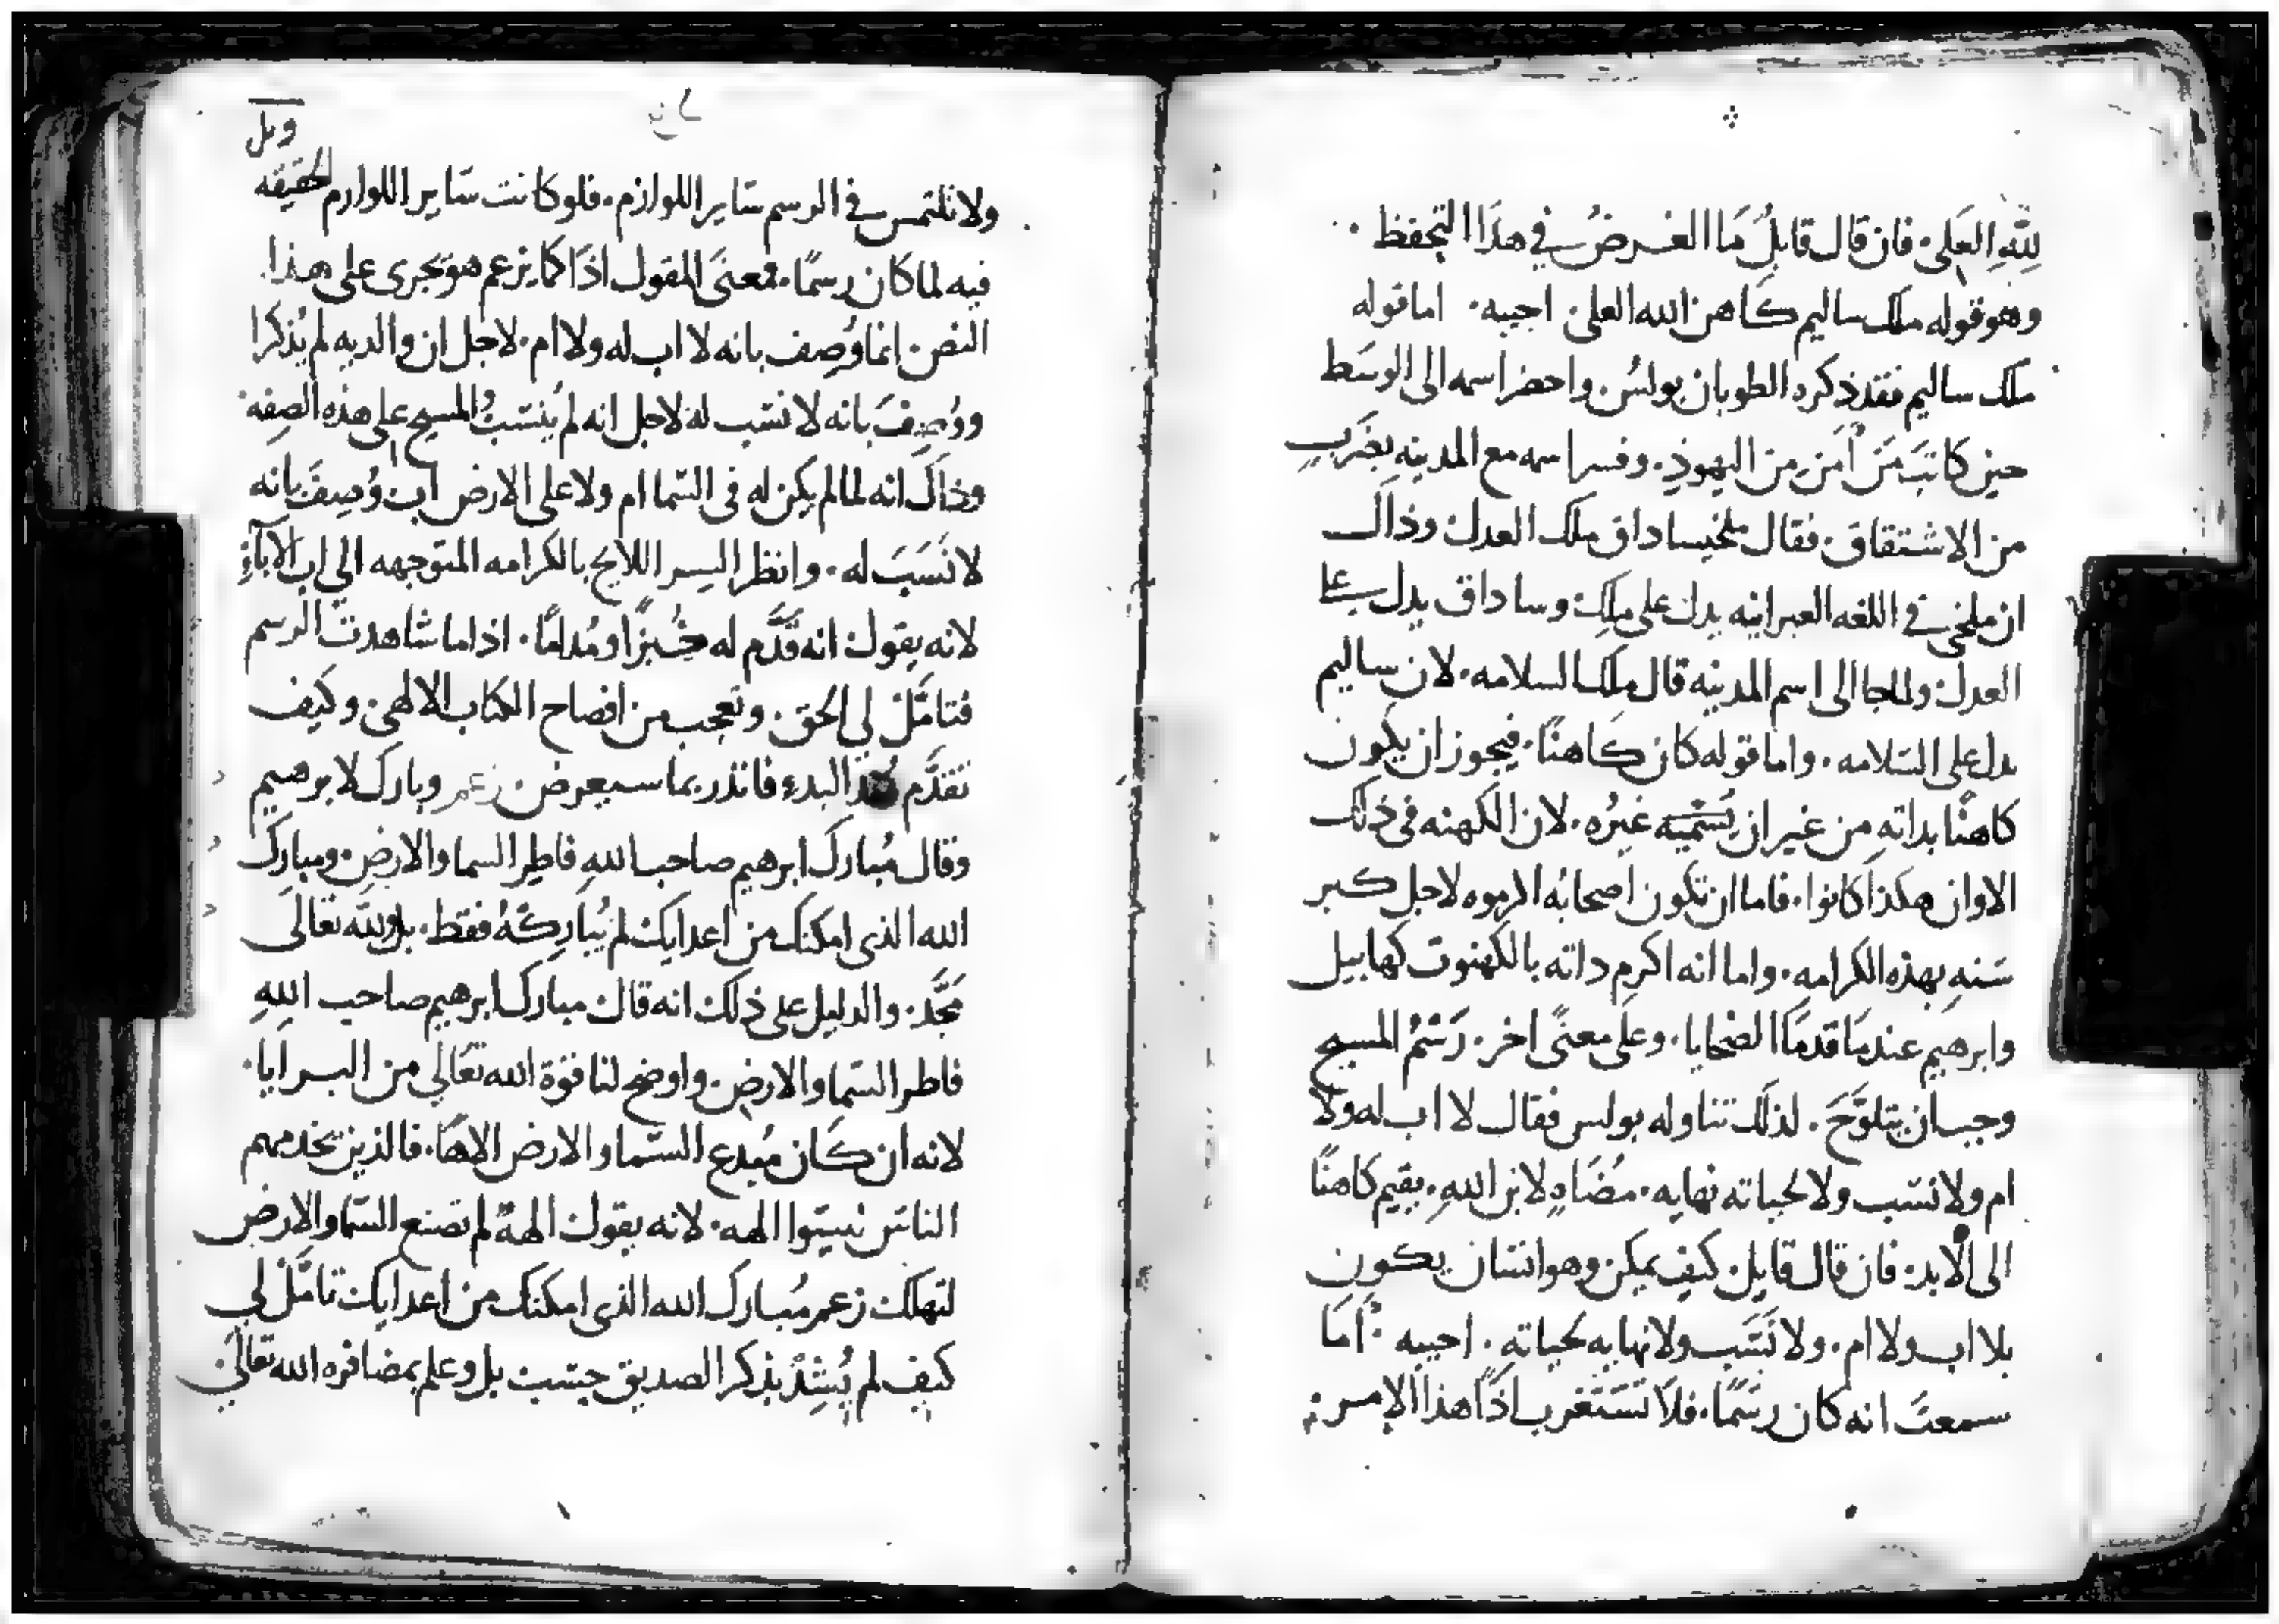 لله العلي. فان قال قايل ما الغرض في هذا التحفظ
وهو قوله ملك ساليم كاهن الله العلي. اجيبه. اما قوله
ملك ساليم فقد ذكره الطوبان بولس. واحضر اسمه الى الوسط
حين كاتب من امن من اليهود. وفسر اسمه مع المدينه بضرب
من الاشتقاق. فقال ملخيساداق ملك العدل وذاك
ان ملخي في اللغه العبرانيه يدل على ملك وساداق يدل على
العدل ولما جا الى اسم المدينه قال ملك السلامه. لان ساليم
يدل على السلامه. واما قوله كان كاهنًا. فيجوز ان يكون
كاهنًا بداته من غير ان يسميه غيره. لان الكهنه في ذلك
الاوان هكذا كانوا. فاما ان تكون اصحابه الزموه لاجل كبر
سنه بهذه الكرامه. واما انه اكرم داته بالكهنوت كهابيل
وابرهيم عندما قدما الضحايا. وعلى معنًى اخر. رسم المسيح
وجب ان يتلوح. لذلك تناوله بولس فقال لا اب له ولا
ام ولا نسب ولا لحياته نهايه. مضاهٍ لابن الله. يقيم كاهنًا
الى الابد. فان قال قايل. كيف يمكن وهو انسان يكون
بلا اب ولا ام. ولا نسب ولا نهايه لحياته. اجيبه. اما
سمعت انه كان رسمًا. فلا تستغرب اذًا هذا الامر
ولا تلتمس في الرسم ساير اللوازم. فلو كانت ساير اللوازم الحقيقه
فيه لما كان رسمًا. فمعنى المقول اذًا كما يزعم هو يجرى على هذا
النص. انما وصف بانه لا اب له ولا ام. لاجل ان والديه لم يذكرا
ووصف بانه لا نسب له لاجل انه لم ينتسب المسيح على هذه الصفه
وذاك انه لما لم يكن له في السما ام ولا على الارض اب وصف بانه
لا نسب له. وانظر السر اللايح بالكرامه المتوجهه الي اب الاباء
لانه يقول انه قدم له خبزًا ومدامًا. اذا ما شاهدت الرسم
فتامل لي الحق. وتعجب من افصاح الكتاب الالهي. وكيف
تقدم منذ البدء فانذر بما سيعرض. زعم وبارك لابرهيم
وقال مبارك ابرهيم صاحب الله فاطر السما والارض. ومبارك
الله الذى امكنك من اعدايك لم يباركه فقط. بل ولله تعالى
مجد. والدليل على ذلك انه قال مبارك ابرهيم صاحب الله
فاطر السما والارض. واوضح لنا قوة الله تعالى من البرايا.
لانه ان كان مبدع السما والارض الاهًا. فالذين تخدمهم
الناس ليسوا الهه. لانه يقول الهة لم تصنع السما والارض
لتهلك زعم مبارك الله الذى امكنك من اعدايك تامل لي
كيف لم يشد بذكر الصديق حسب بل وعلم بمضافره الله تعالى